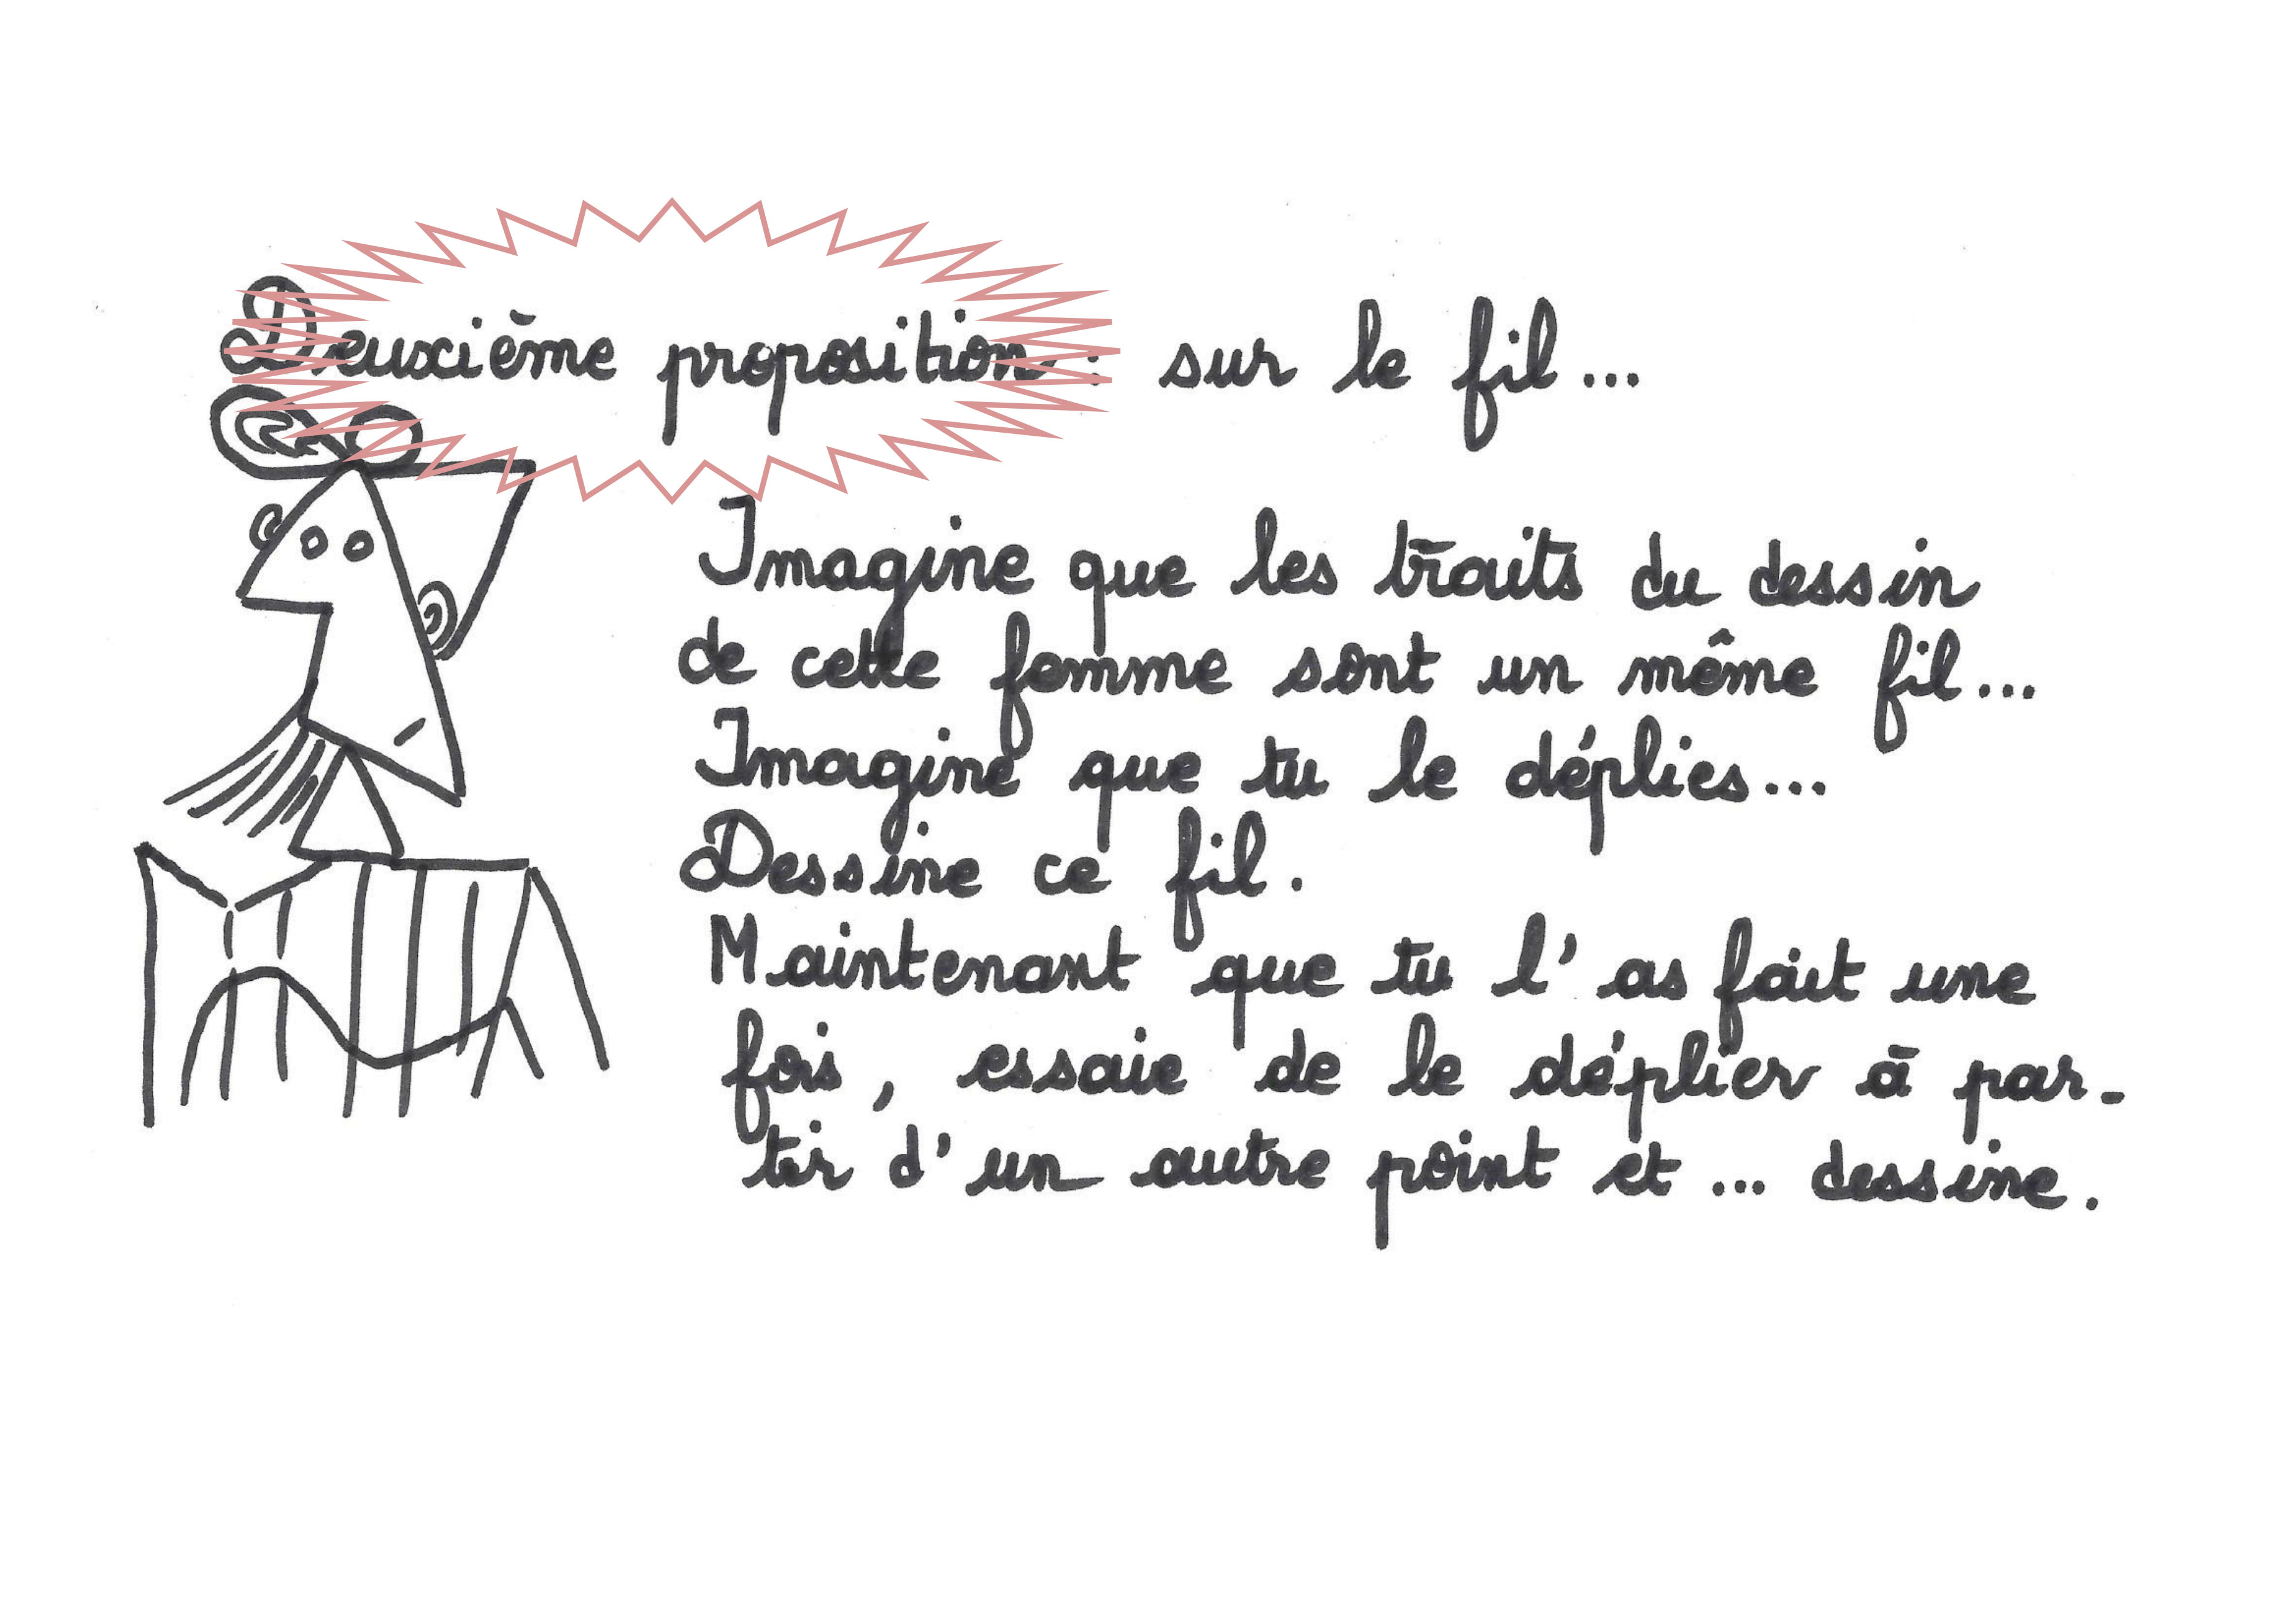 Deuxième proposition : sur le fil...
Imagine que les traits du dessin
de cette femme sont un même fil...
Imagine que tu le déplies...
Dessine ce fil.
Maintenant que tu l'as fait une
fois, essaie de le déplier à par-
tir d'un autre point et ... dessine.